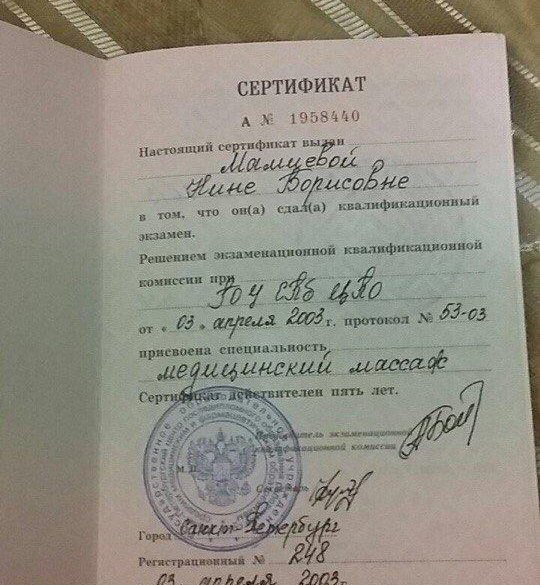 СЕРТИФИКАТ
А № 1958440
Настоящий сертификат выдан
Мамцевой
Нине Борисовне
в том, что он(а) сдал(а) квалификационный
экзамен.
Решением экзаменационной квалификационной
комиссии при
ГОУ СПб ЦПО
от « 03 » апреля 2003 г. протокол № 53-03
присвоена специальность
медицинский массаж
Сертификат действителен пять лет.
Председатель экзаменационной
квалификационной комиссии
М.П.
Секретарь
Город Санкт-Петербург
Регистрационный № 248
03 апреля 2003